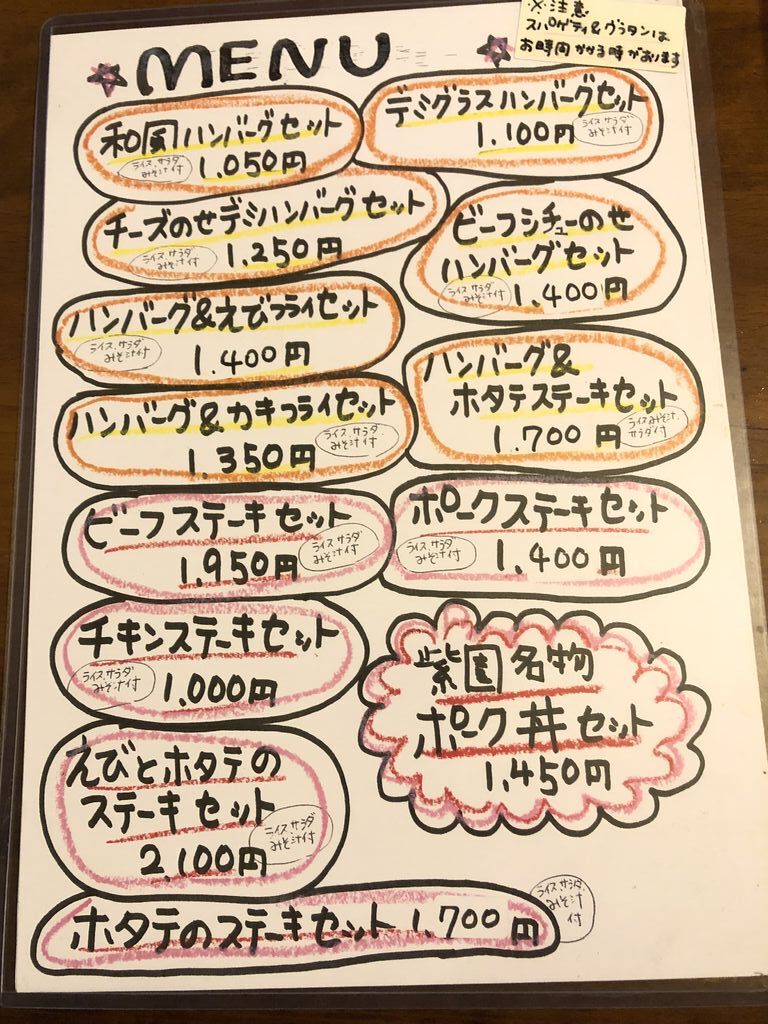 ※注意
スパゲティ&グラタンは
お時間かかる時があります
MENU
和風ハンバーグセット
ライス、サラダ
みそ汁付
1.050円
デミグラスハンバーグセット
1.100円
ライス、サラダ
みそ汁付
チーズのせデミハンバーグセット
ライス、サラダ
みそ汁付
1.250円
ビーフシチューのせ
ハンバーグセット
ライス、サラダ
みそ汁付
1.400円
ハンバーグ&えびフライセット
ライス、サラダ
みそ汁付
1.400円
ハンバーグ&
ホタテステーキセット
1.700円
ライスみそ汁、
サラダ付
ハンバーグ&カキフライセット
1.350円
ライス、サラダ
みそ汁付
ビーフステーキセット
1.950円
ライス、サラダ
みそ汁付
ポークステーキセット
ライス、サラダ
みそ汁付
1.400円
チキンステーキセット
ライス、サラダ
みそ汁付
1.000円
紫園名物
ポーク丼セット
1.450円
えびとホタテの
ステーキセット
2.100円
ライス、サラダ
みそ汁付
ホタテのステーキセット 1.700円
ライス、サラダ
みそ汁
付